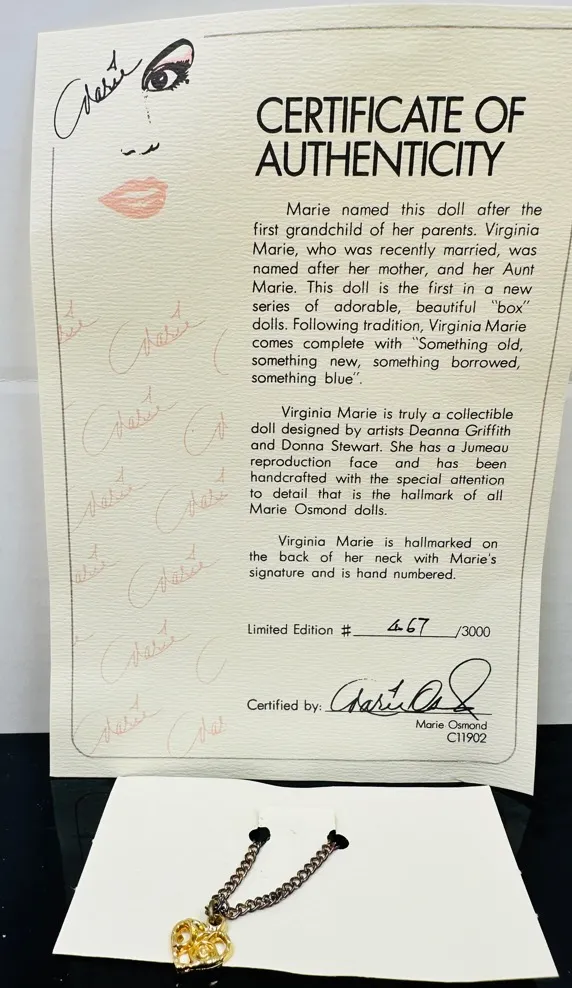 Marie
CERTIFICATE OF
AUTHENTICITY
Marie named this doll after the
first grandchild of her parents. Virginia
Marie, who was recently married, was
named after her mother, and her Aunt
Marie. This doll is the first in a new
series of adorable, beautiful "box"
dolls. Following tradition, Virginia Marie
comes complete with "Something old,
something new, something borrowed,
something blue".
Virginia Marie is truly a collectible
doll designed by artists Deanna Griffith
and Donna Stewart. She has a Jumeau
reproduction face and has been
handcrafted with the special attention
to detail that is the hallmark of all
Marie Osmond dolls.
Virginia Marie is hallmarked on
the back of her neck with Marie's
signature and is hand numbered.
Limited Edition # 467 /3000
Certified by: Marie Osmond
Marie Osmond
C11902
Marie
Marie
Marie
Marie
Marie
Marie
Marie
Marie
Marie